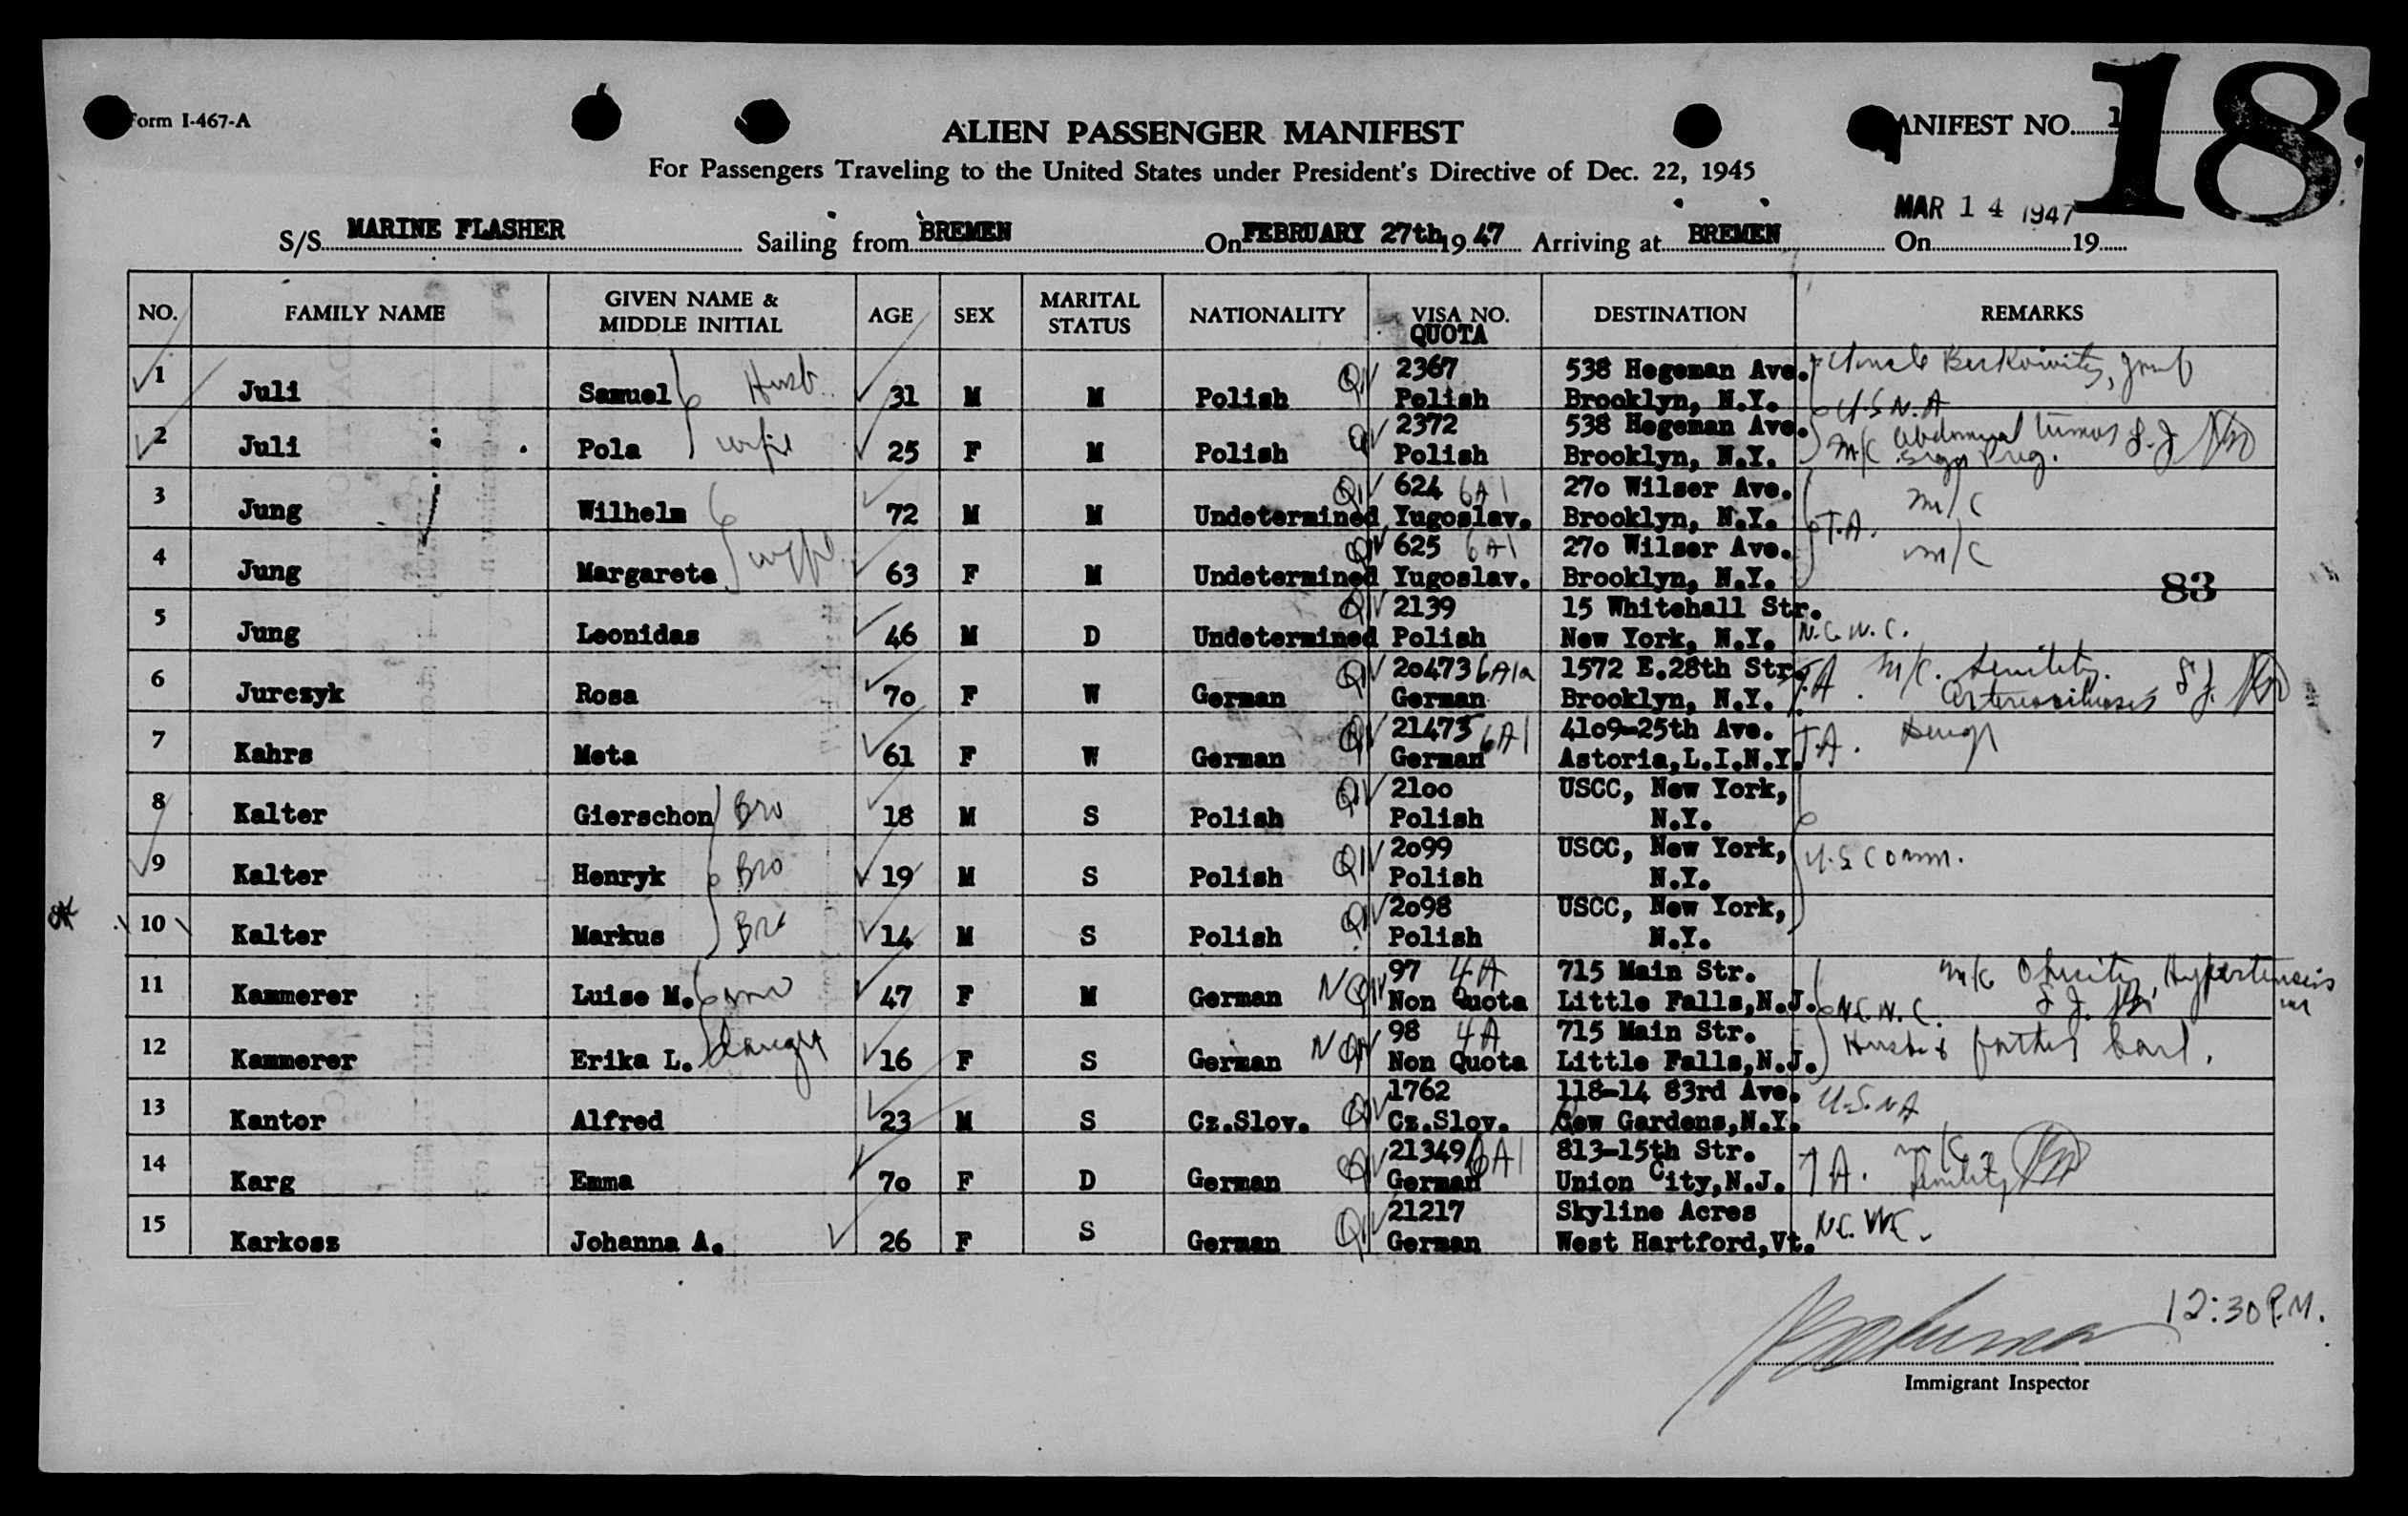 18
Form I-467-A
ALIEN PASSENGER MANIFEST
ANIFEST NO. 1
For Passengers Traveling to the United States under President's Directive of Dec. 22, 1945
MAR 14 1947
S/S MARINE FLASHER Sailing from BREMEN On FEBRUARY 27th 19 47 Arriving at BREMEN On 19
NO. FAMILY NAME GIVEN NAME & MIDDLE INITIAL AGE SEX MARITAL STATUS NATIONALITY VISA NO. QUOTA DESTINATION REMARKS
1 Juli Samuel Husb 31 M M Polish QIV 2367 Polish 538 Hegeman Ave. Brooklyn, N.Y. Uncle Berkowitz, U.S.N.A
2 Juli Pola wife 25 F M Polish QIV 2372 Polish 538 Hegeman Ave. Brooklyn, N.Y. M/C abdominal tumor S.J.
3 Jung Wilhelm 72 M M Undetermined QIV 624 6A1 Yugoslav. 270 Wilser Ave. Brooklyn, N.Y. T.A. M/C
4 Jung Margarete wife 63 F M Undetermined QIV 625 6A1 Yugoslav. 270 Wilser Ave. Brooklyn, N.Y. M/C
83
5 Jung Leonidas 46 M D Undetermined QIV 2139 Polish 15 Whitehall Str. New York, N.Y. N.C.W.C.
6 Jurczyk Rosa 70 F W German QIV 20473 6A1a German 1572 E.28th Str. Brooklyn, N.Y. T.A. M/C. Senility. S.J.
7 Kahrs Meta 61 F W German QIV 21475 6A1 German 4109-25th Ave. Astoria,L.I.N.Y. T.A.
8 Kalter Gierschon Bro 18 M S Polish QIV 2100 Polish USCC, New York, N.Y.
9 Kalter Henryk Bro 19 M S Polish QIV 2099 Polish USCC, New York, N.Y. U.S Comm.
10 Kalter Markus Bro 14 M S Polish QIV 2098 Polish USCC, New York, N.Y.
11 Kammerer Luise M. 47 F M German NQIV 97 4A Non Quota 715 Main Str. Little Falls,N.J. N.C.W.C. M/C Obesity, Hypertension S.J.
12 Kammerer Erika L. daught 16 F S German NQIV 98 4A Non Quota 715 Main Str. Little Falls,N.J. Husb & father Carl.
13 Kantor Alfred 23 M S Cz.Slov. QIV 1762 Cz.Slov. 118-14 83rd Ave. Gew Gardens,N.Y. U.S.N.A
14 Karg Emma 70 F D German QIV 21349 6A1 German 813-15th Str. Union City,N.J. T.A. M/C Senility
15 Karkosz Johanna A. 26 F S German QIV 21217 German Skyline Acres West Hartford,Vt. N.C.W.C.
12:30 P.M.
Immigrant Inspector